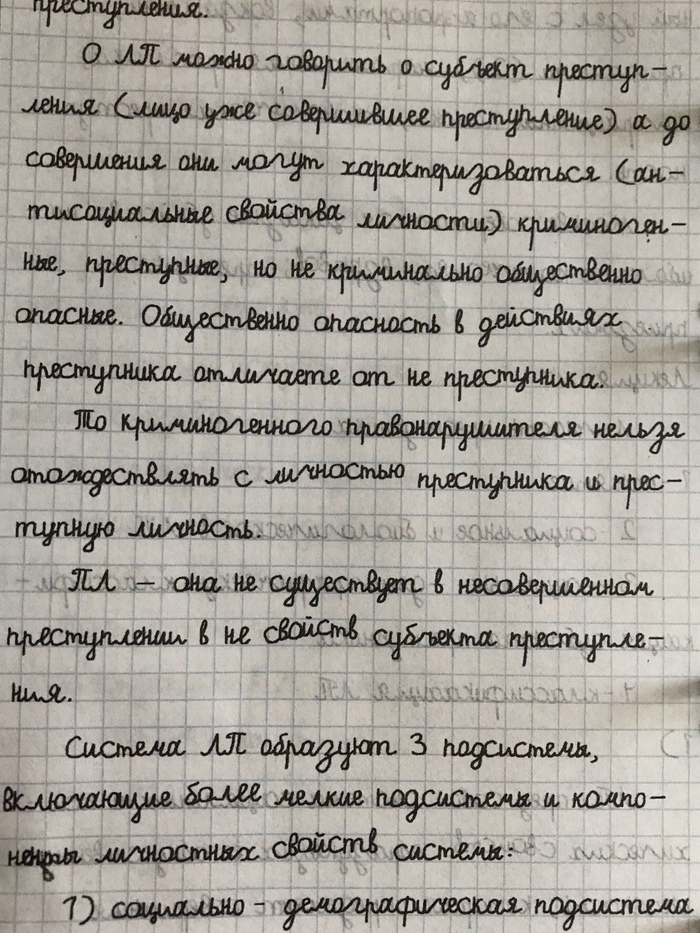 преступления.
О ЛП можно говорить о субъект преступ-
ления (лицо уже совершившее преступление) а до
совершения они могут характеризоваться (ан-
тисоциальные свойства личности) криминоген-
ные, преступные, но не криминально общественно
опасные. Общественно опасность в действиях
преступника отличаете от не преступника.
То криминогенного правонарушителя нельзя
отождествлять с личностью преступника и прес-
тупную личность.
ПЛ — она не существует в несовершенном
преступлении в не свойств субъекта преступле-
ния.
Система ЛП образуют 3 подсистемы,
включающие более мелкие подсистемы и компо-
ненты личностных свойств системы:
1) социально - демографическая подсистема